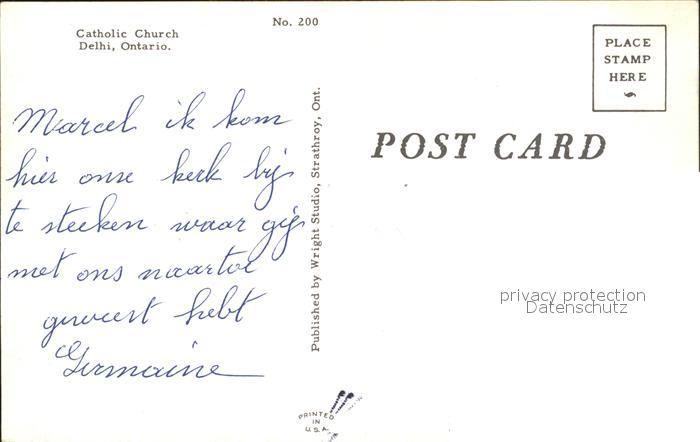 No. 200
Catholic Church
Delhi, Ontario.
Marcel ik kom
hier onse kerk bij
te steeken waar gij
met ons naartoe
geweest hebt
Germaine
Published by Wright Studio, Strathroy, Ont.
PLACE
STAMP
HERE
POST CARD
privacy protection
Datenschutz
PRINTED
IN
U.S.A.